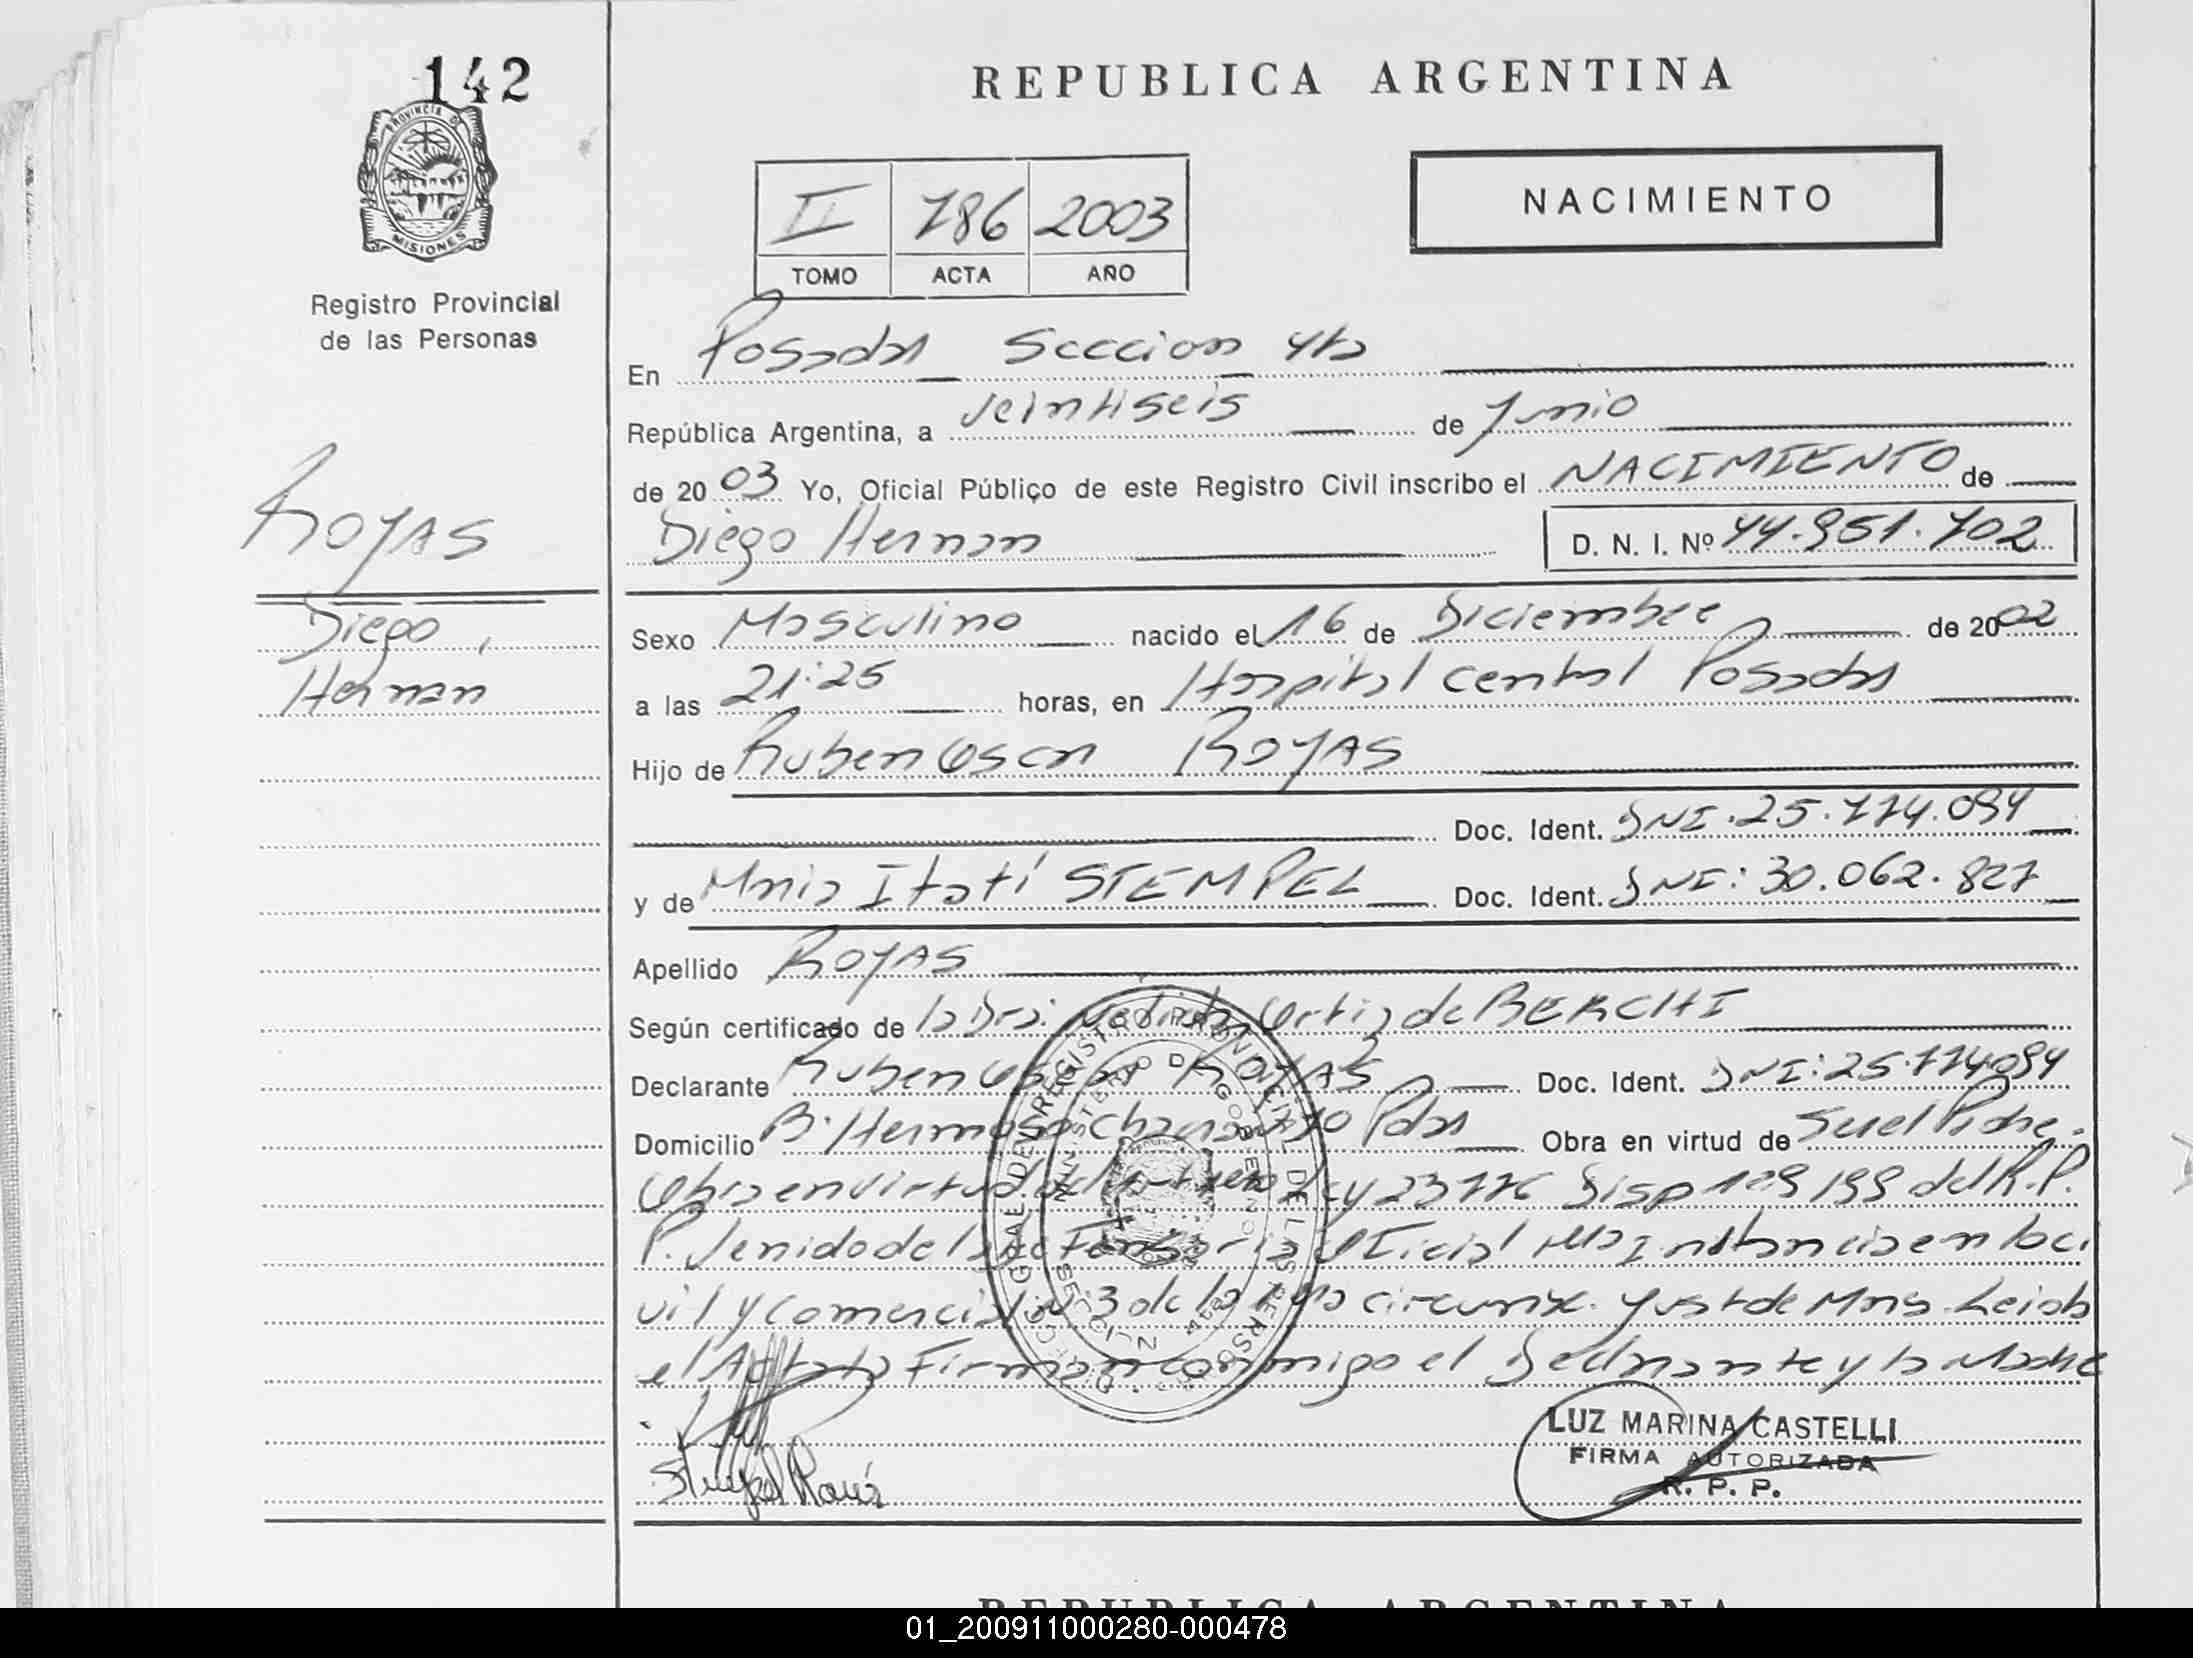 142
PROVINCIA D
MISIONES
Registro Provincial
de las Personas
REPUBLICA ARGENTINA
NACIMIENTO
II 786 2003
TOMO ACTA AÑO
En Posadas Seccion 4ta
República Argentina, a veintiseis de Junio
de 2003 Yo, Oficial Público de este Registro Civil inscribo el NACIMIENTO de
Diego Hernan D. N. I. Nº 44.951.702
ROJAS
Diego,
Hernan
Sexo Masculino nacido el 16 de Diciembre de 2002
a las 21:25 horas, en Hospital Central Posadas
Hijo de Ruben Oscar ROJAS
Doc. Ident. DNI. 25.774.094
y de Maria Itatí STEMPEL Doc. Ident. DNI: 30.062.827
Apellido ROJAS
Según certificado de la Dra: Ortiz de BERCHI
Declarante Ruben Oscar ROJAS Doc. Ident. DNI: 25.774094
Domicilio B. Hermoso Pdas Obra en virtud de Ser el Padre.
Obra en virtud Ley 23776 Disp 129/99 del R.P.
P. venido de la Oficial Instancia en lo ci
vil y Comercial N 3 de la 1ra circunsc. Just de Mnes. Leida
el Acta Firman conmigo el Declarante y la Madre
Stempel María
LUZ MARINA CASTELLI
FIRMA AUTORIZADA
R. P. P.
REPUBLICA ARGENTINA
01_200911000280-000478